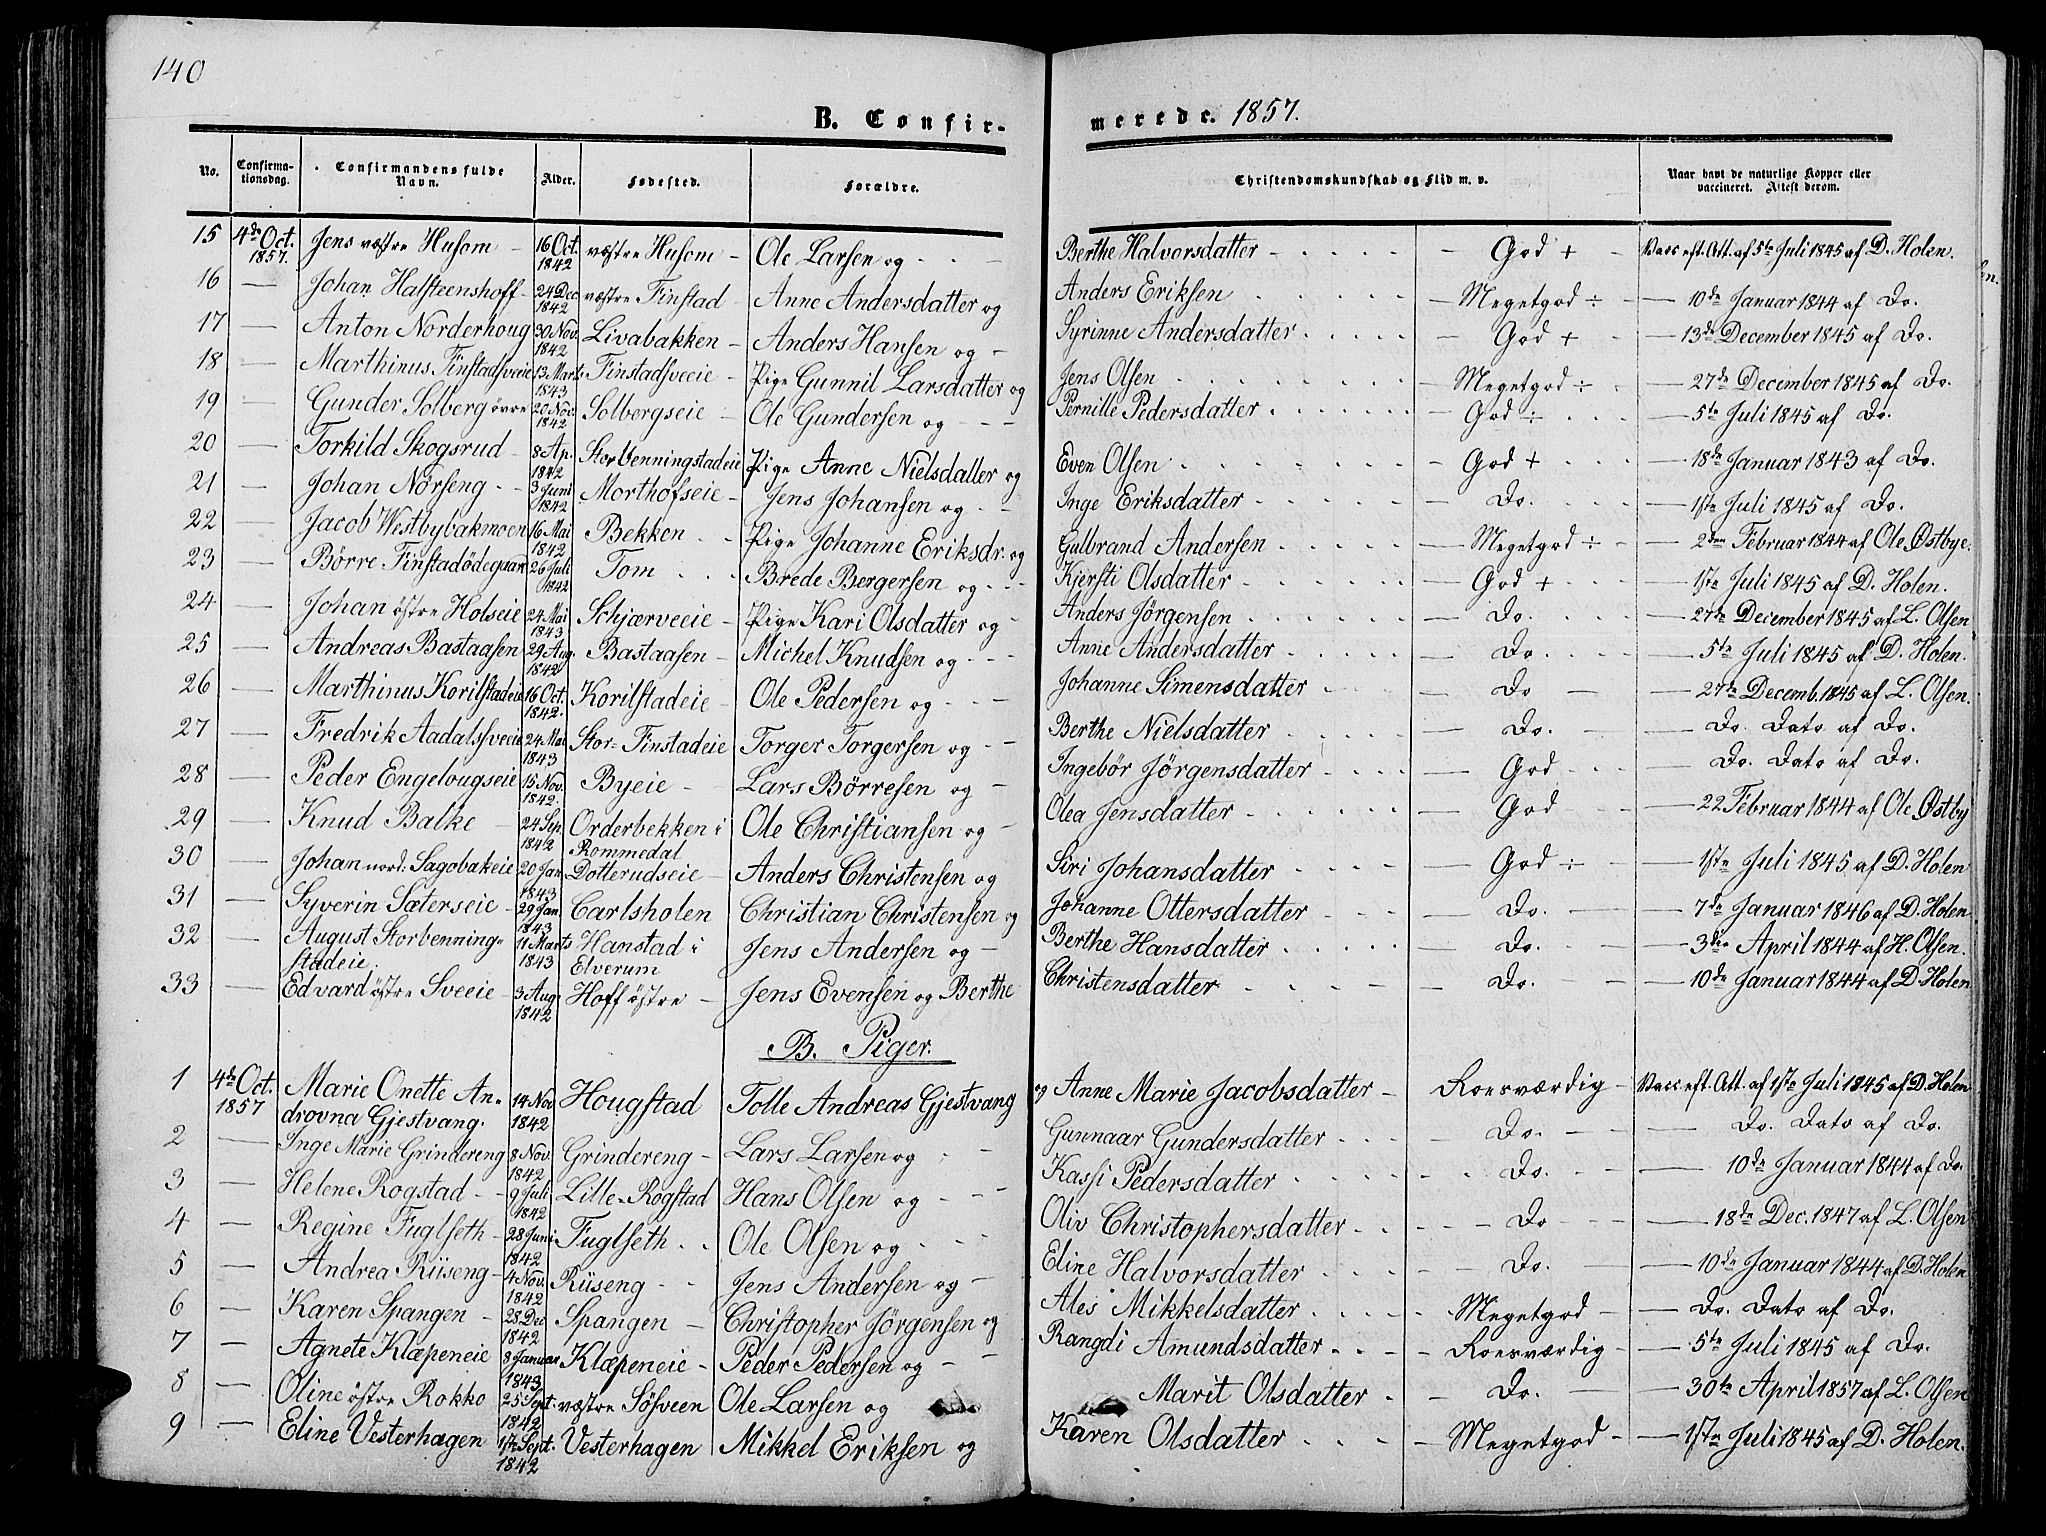 140
B. Confir-
merede. 1857.
No. Confirma-tionsdag. Confirmandens fulde Navn. Alder. Fødested. Forældre. Christendomskundskab og Flid m. v. Naar havt de naturlige Kopper eller vaccineret. Attest derom.
15 4de Oct. 1857. Jens væstre Husom 16 Oct. 1842 væstre Husom Ole Larsen og Berthe Halvorsdatter God + Vacc eft. Att. af 5te Juli 1845 af D. Holen.
16 — Johan Halsteenshoff 24 Dec 1842 væstre Finstad Anne Andersdatter og Anders Eriksen Megetgod ÷ — 10de Januar 1844 af Do.
17 — Anton Norderhoug 30 Nov. 1842 Livabakken Anders Hansen og Syrinne Andersdatter God + — 13de December 1845 af Do.
18 — Marthinus Finstadsveie 13 Marts 1843 Finstadsveeie Pige Gunnil Larsdatter og Jens Olsen Megetgod ÷ — 27de December 1845 af Do.
19 — Gunder Solberg øvre 20 Nov. 1842 Solbergseie Ole Gundersen og Pernille Pedersdatter God ÷ — 5te Juli 1845 af Do.
20 — Torkild Skogsrud 8 Ap. 1842 Storbenningstadeie Pige Anne Nielsdatter og Even Olsen God + — 18de Januar 1843 af Do.
21 — Johan Nørseng 3 Juni 1842 Morthofseie Jens Johansen og Inge Eriksdatter Do. — 1ste Juli 1845 af Do.
22 — Jacob Westbybakmoen 16 Mai 1842 Bekken Pige Johanne Eriksdr. og Gulbrand Andersen Megetgod ÷ — 2den Februar 1844 af Ole Østbye.
23 — Børre Finstadødegaard 26 Juli 1842 Tom Brede Bergersen og Kjersti Olsdatter God + — 1ste Juli 1845 af D. Holen.
24 — Johan østre Holseie 24 Mai 1843 Schjærveeie Pige Kari Olsdatter og Anders Jørgensen Do. — 27de December 1845 af L. Olsen
25 — Andreas Bastaasen 29 Aug. 1842 Bastaasen Michel Knudsen og Anne Andersdatter Do. — 5te Juli 1845 af D. Holen.
26 — Marthinus Korilstadeie 16 Oct. 1842. Korilstadeie Ole Pedersen og Johanne Simensdatter Do — 27de Decemb. 1845 af L. Olsen.
27 — Fredrik Aadalssveeie 24 Mai 1843 Stor-Finstadeie Torger Torgersen og Berthe Nielsdatter Do. Do. Dato af Do.
28 — Peder Engelougseie 15 Nov. 1842. Byeie Lars Børresen og Ingebør Jørgensdatter God Do. Dato af Do.
29 — Knud Balke 24 Sep. 1842 Orderbekken i Rommedal Ole Christiansen og Olea Jensdatter God — 22 Februar 1844 af Ole Østby
30 — Johan nord: Sagobakeie 20 Jan 1843 Dotterudseie Anders Christensen og Siri Johansdatter God ÷ — 1ste Juli 1845 af D. Holen
31 — Syverin Sæterseie 29 Jan. 1843 Carlsholen Christian Christensen og Johanne Ottersdatter Do. — 7de Januar 1846 af D. Holen
32 — August Storbenning-stadeie. 11 Marts 1843 Hanstad i Elverum Jens Andersen og Berthe Hansdatter Do. — 3die April 1844 af H. Olsen.
33 — Edvard østre Sveeie 3 Aug 1842 Hoff østre Jens Evensen og Berthe Christensdatter Do. — 10de Januar 1844 af D. Holen
B. Piger.
1 4de Oct. 1857 Marie Onette An-drovna Gjestvang. 14 Nov 1842 Hougstad Tolle Andreas Gjestvang og Anne Marie Jacobsdatter Roesværdig Vacc eft. Att. af 1ste Juli 1845 af D. Holen
2 — Inge Marie Grindereng 8 Nov. 1842 Grindereng Lars Larsen og Gunnaar Gundersdatter Do. Do. Dato af Do.
3 — Helene Rogstad 9 Juli 1842 Lille-Rogstad Hans Olsen og Kassi Pedersdatter Do. — 10de Januar 1844 af Do.
4 — Regine Fuglseth 28 Juni 1842 Fuglseth Ole Olsen og Oliv Christophersdatter Do — 18de Dec. 1847 af L. Olsen
5 — Andrea Riiseng 4 Nov. 1842 Riiseng Jens Andersen og Eline Halvorsdatter Do. — 10de Januar 1844 af D. Holen
6 — Karen Spangen 23 Dec 1842 Spangen Christopher Jørgensen og Ales Mikkelsdatter Megetgod — Do. Dato af Do.
7 — Agnete Klæpeneie 8 Januar 1843 Klæpeneie Peder Pedersen og Rangdi Amundsdatter Roesværdig — 5te Juli 1845 af Do.
8 — Oline østre Rokko 25 Sept. 1842 væstre Søsveen Ole Larsen og Marit Olsdatter Do. — 30te April 1857 af L. Olsen
9 — Eline Vesterhagen 17 Sept. 1842 Vesterhagen Mikkel Eriksen og Karen Olsdatter Megetgod — 1ste Juli 1845 af D. Holen.